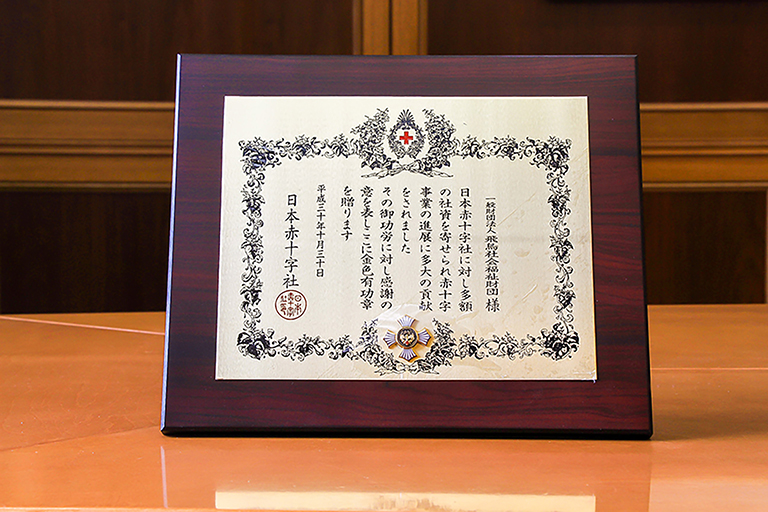 一般財団法人 飛鳥社会福祉財団 様
日本赤十字社に対し多額
の社資を寄せられ赤十字
事業の進展に多大の貢献
をされました
その御功労に対し感謝の
意を表しここに金色有功章
を贈ります
平成三十年十月三十日
日本赤十字社